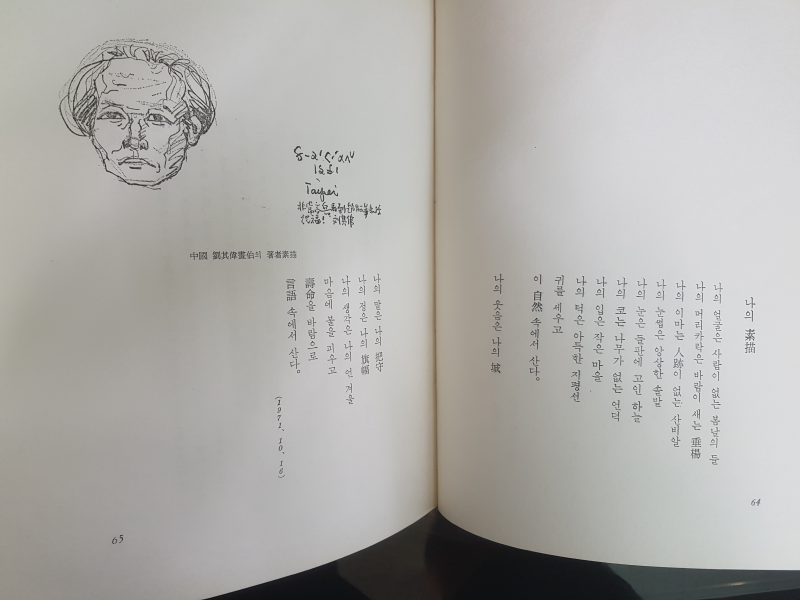 나의 素描
나의 얼굴은 사람이 없는 봄날의 들
나의 머리카락은 바람이 새는 垂楊
나의 이마는 人跡이 없는 산비알
나의 눈썹은 앙상한 솔밭
나의 눈은 들판에 고인 하늘
나의 코는 나무가 없는 언덕
나의 입은 작은 마을
나의 턱은 아득한 지평선
귀를 세우고
이 自然 속에서 산다.
나의 웃음은 나의 城
64
Taipei
中國 劉其偉畫伯의 著者素描
나의 말은 나의 把守
나의 정은 나의 旗幅
나의 생각은 나의 언 겨울
마음에 불을 피우고
壽命을 바람으로
言語 속에서 산다.
(1971. 10. 16)
65